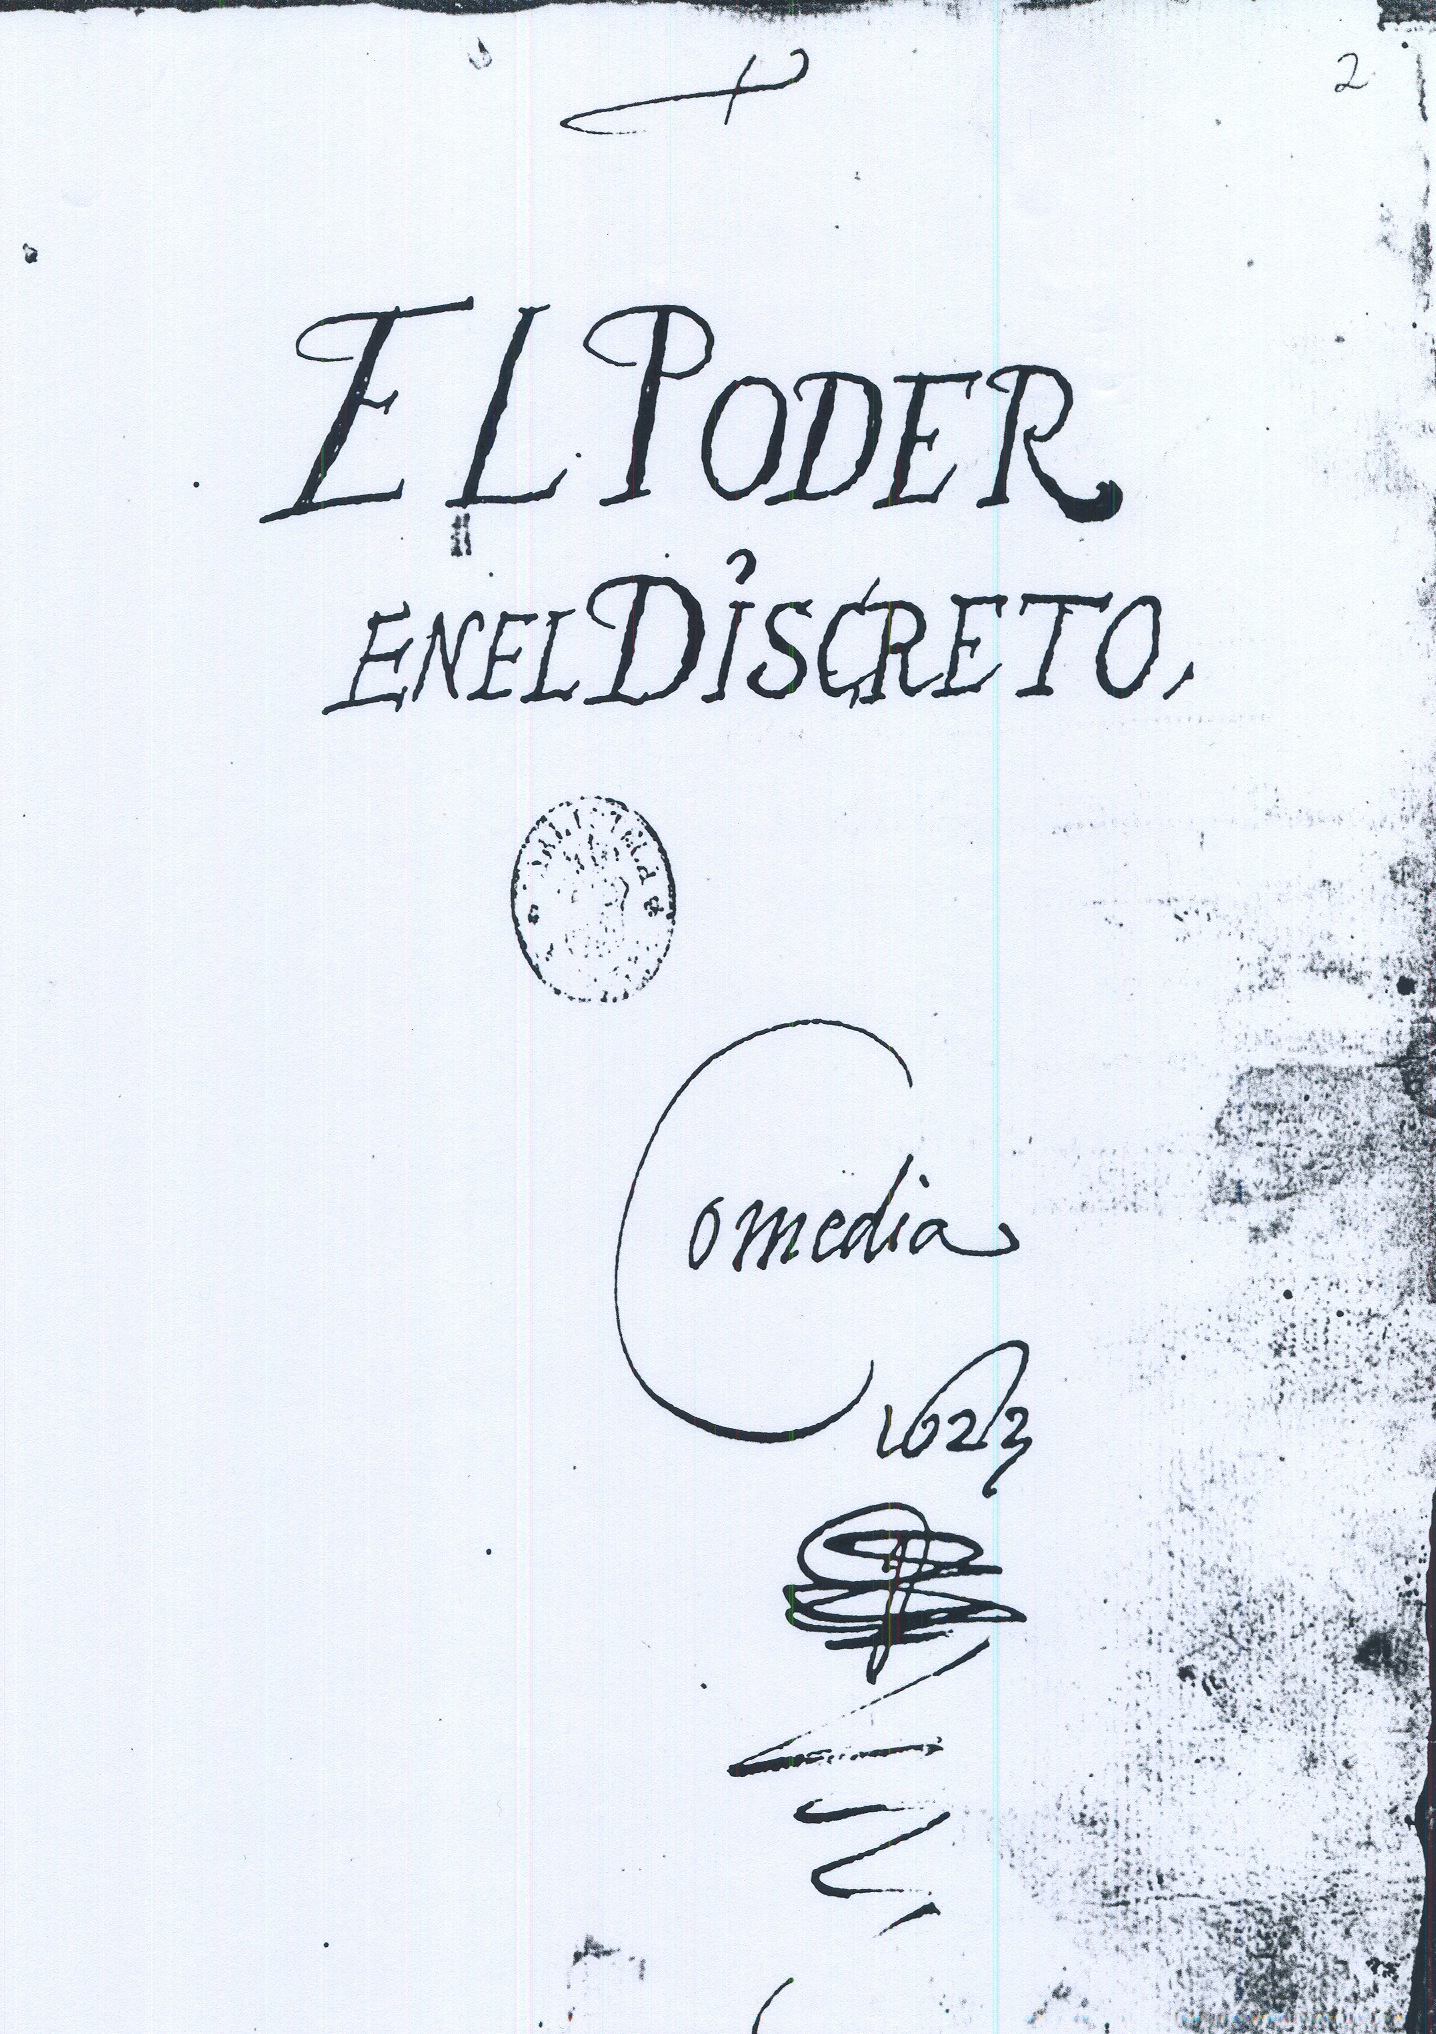 2
EL PODER
EN EL DISCRETO,
Comedia
1623